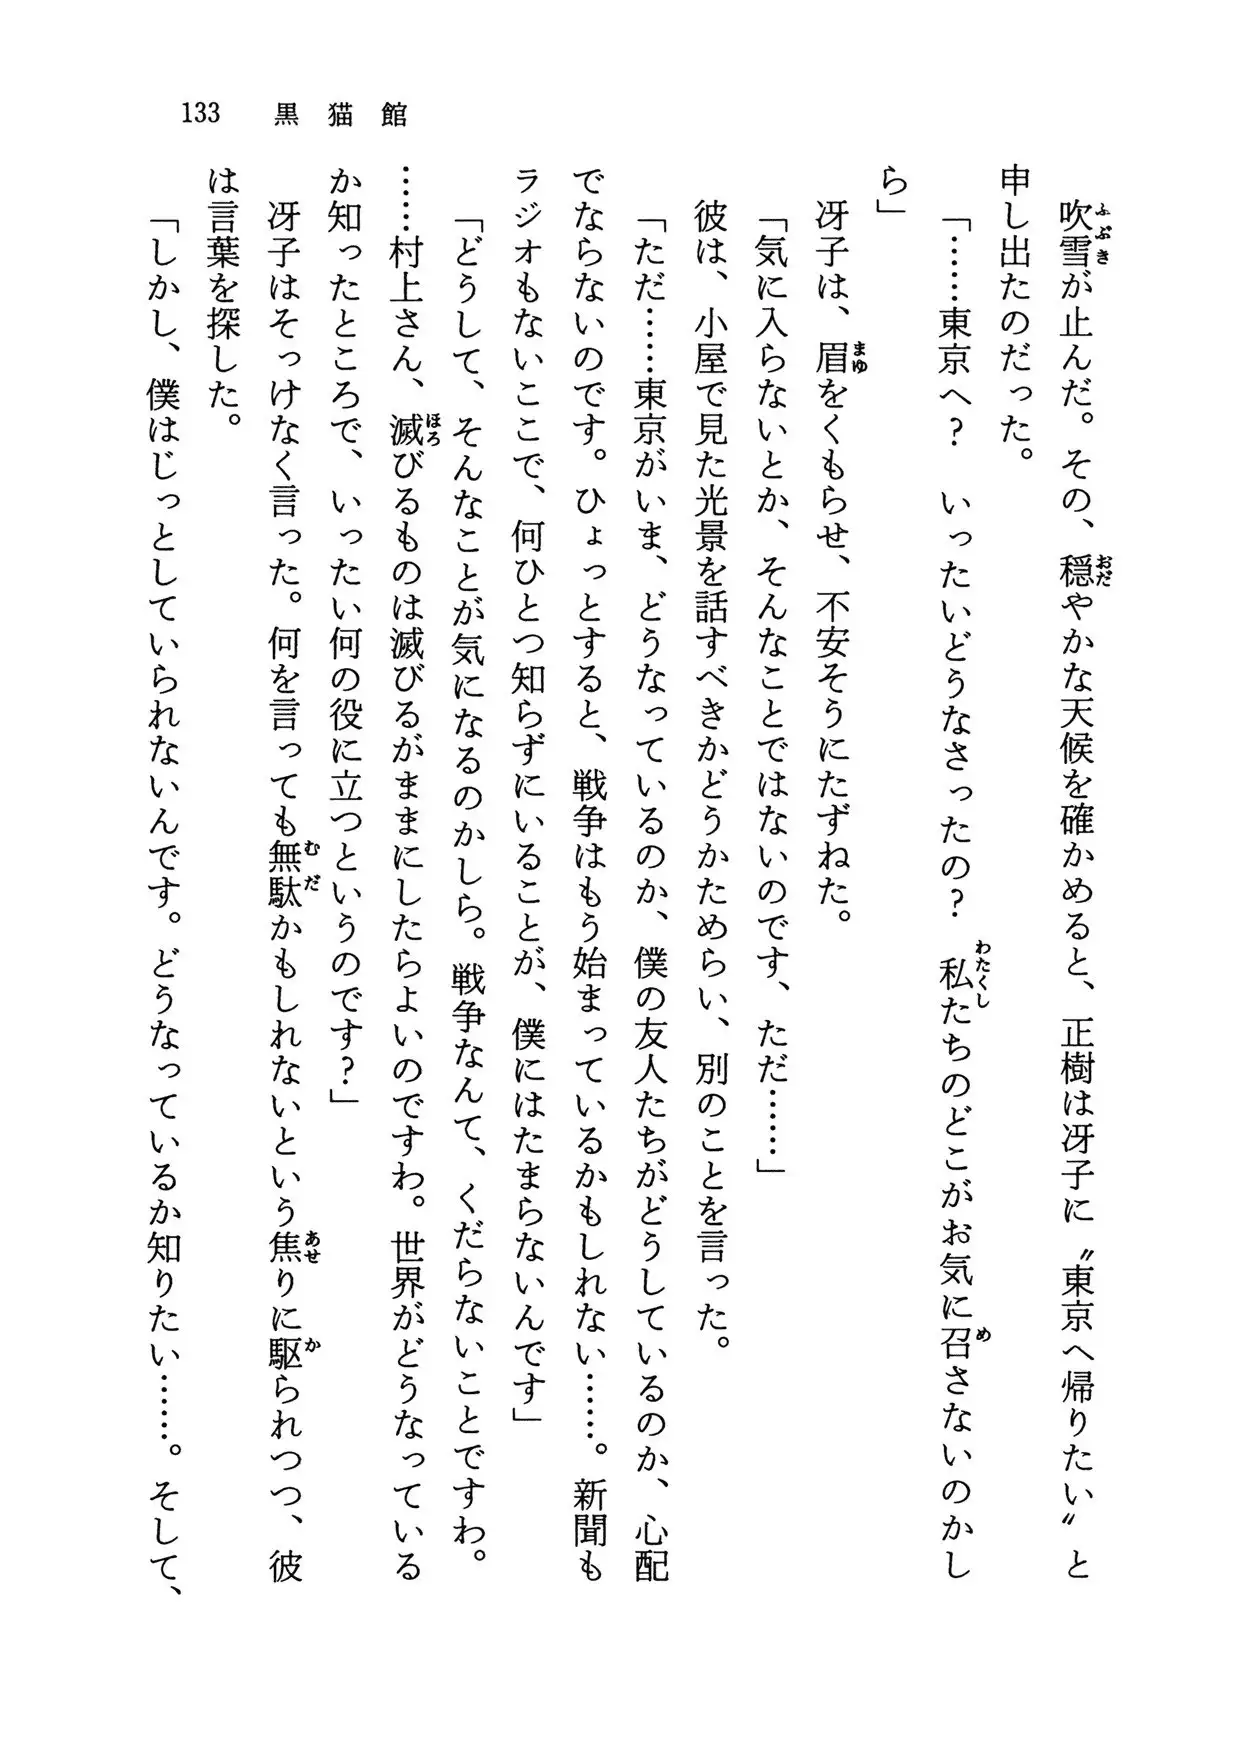 133 黒猫館
吹雪が止んだ。その、穏やかな天候を確かめると、正樹は冴子に〝東京へ帰りたい〟と
申し出たのだった。
「……東京へ? いったいどうなさったの? 私たちのどこがお気に召さないのかし
ら」
冴子は、眉をくもらせ、不安そうにたずねた。
「気に入らないとか、そんなことではないのです、ただ……」
彼は、小屋で見た光景を話すべきかどうかためらい、別のことを言った。
「ただ……東京がいま、どうなっているのか、僕の友人たちがどうしているのか、心配
でならないのです。ひょっとすると、戦争はもう始まっているかもしれない……。新聞も
ラジオもないここで、何ひとつ知らずにいることが、僕にはたまらないんです」
「どうして、そんなことが気になるのかしら。戦争なんて、くだらないことですわ。
……村上さん、滅びるものは滅びるがままにしたらよいのですわ。世界がどうなっている
か知ったところで、いったい何の役に立つというのです?」
冴子はそっけなく言った。何を言っても無駄かもしれないという焦りに駆られつつ、彼
は言葉を探した。
「しかし、僕はじっとしていられないんです。どうなっているか知りたい……。そして、